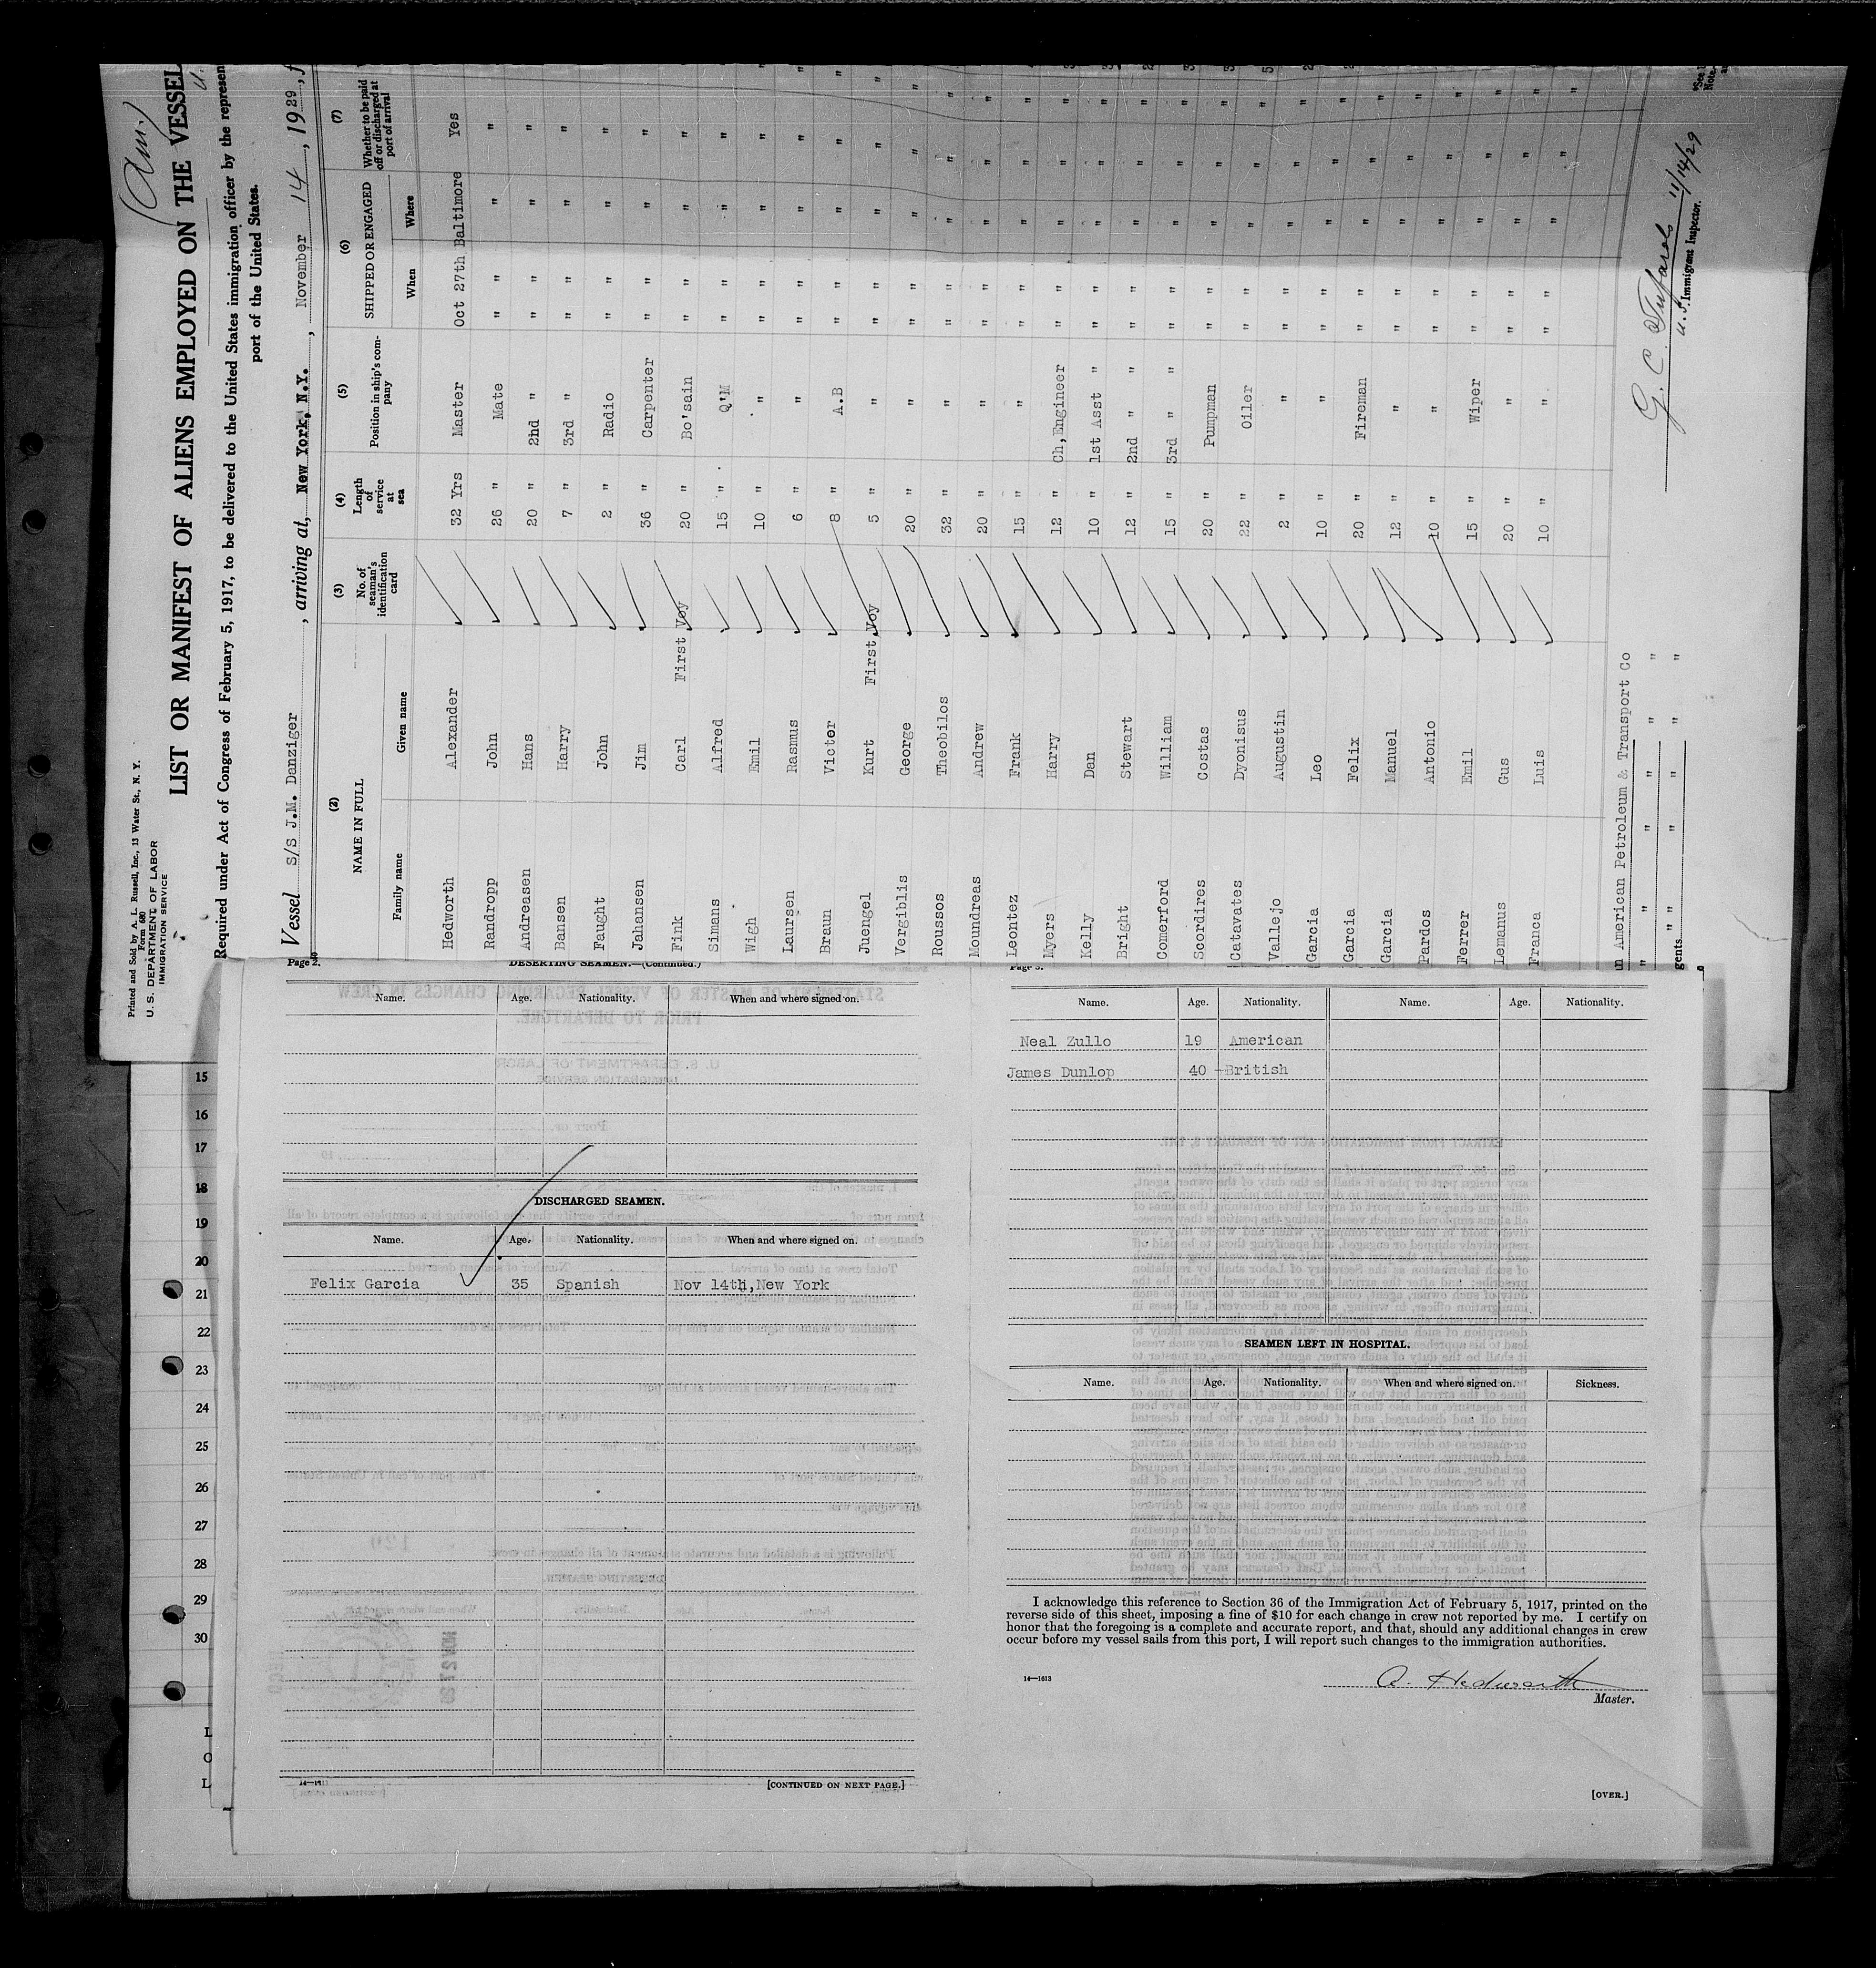 (Am)
Printed and Sold by A. L. Russell, Inc., 13 Water St., N. Y.
Form 680
U. S. DEPARTMENT OF LABOR
IMMIGRATION SERVICE
LIST OR MANIFEST OF ALIENS EMPLOYED ON THE VESSEL
Required under Act of Congress of February 5, 1917, to be delivered to the United States immigration officer by the represen
port of the United States.
Vessel S/S J.M. Danziger, arriving at, New York, N.Y., November 14, 1929, f
(2) (3) (4) (5) (6) (7)
NAME IN FULL No. of seaman's identification card Length of service at sea Position in ship's company SHIPPED OR ENGAGED Whether to be paid off or discharged at port of arrival
Family name Given name When Where
Hedworth Alexander 32 Yrs Master Oct 27th Baltimore Yes
Randropp John 26 " Mate " " " "
Andreasen Hans 20 " 2nd " " " " "
Bansen Harry 7 " 3rd " " " " "
Faught John 2 " Radio " " " "
Jahansen Jim 36 " Carpenter " " " "
Fink Carl First Voy 20 " Bo'sain " " " "
Simans Alfred 15 " Q'M " " " "
Wigh Emil 10 " " " " " "
Laursen Rasmus 6 " " " " " "
Braun Victor 8 " A.B " " " "
Juengel Kurt First Voy 5 " " " " " "
Vergiblis George 20 " " " " " "
Roussos Theobilos 32 " " " " " "
Moundreas Andrew 20 " " " " " "
Leontez Frank 15 " " " " " "
Myers Harry 12 " Ch,Engineer " " " "
Kelly Dan 10 " 1st Asst " " " " "
Bright Stewart 12 " 2nd " " " " " "
Comerford William 15 " 3rd " " " " " "
Scordires Costas 20 " Pumpman " " " "
Catavates Dyonisus 22 " Oiler " " " "
Vallejo Augustin 2 " " " " " "
Garcia Leo 10 " " " " " "
Garcia Felix 20 " Fireman " " " "
Garcia Manuel 12 " " " " " "
Pardos Antonio 10 " " " " " "
Ferrer Emil 15 " Wiper " " " "
Lemanus Gus 20 " " " " " "
Franca Luis 10 " " " " " "
American Petroleum & Transport Co
" " " " " "
gents " " " " " "
11/14/29
U.S. Immigrant Inspector.
Page 2.
DESERTING SEAMEN.—(Continued.)
Name. Age. Nationality. When and where signed on.
DISCHARGED SEAMEN.
Name. Age. Nationality. When and where signed on.
Felix Garcia 35 Spanish Nov 14th,New York
14—1613
[CONTINUED ON NEXT PAGE.]
Page 3.
Name. Age. Nationality. Name. Age. Nationality.
Neal Zullo 19 American
James Dunlop 40 -British
SEAMEN LEFT IN HOSPITAL.
Name. Age. Nationality. When and where signed on. Sickness.
I acknowledge this reference to Section 36 of the Immigration Act of February 5, 1917, printed on the
reverse side of this sheet, imposing a fine of $10 for each change in crew not reported by me. I certify on
honor that the foregoing is a complete and accurate report, and that, should any additional changes in crew
occur before my vessel sails from this port, I will report such changes to the immigration authorities.
14—1613
A. Hedworth
Master.
[OVER.]
15
16
17
18
19
20
21
22
23
24
25
26
27
28
29
30
L
O
L